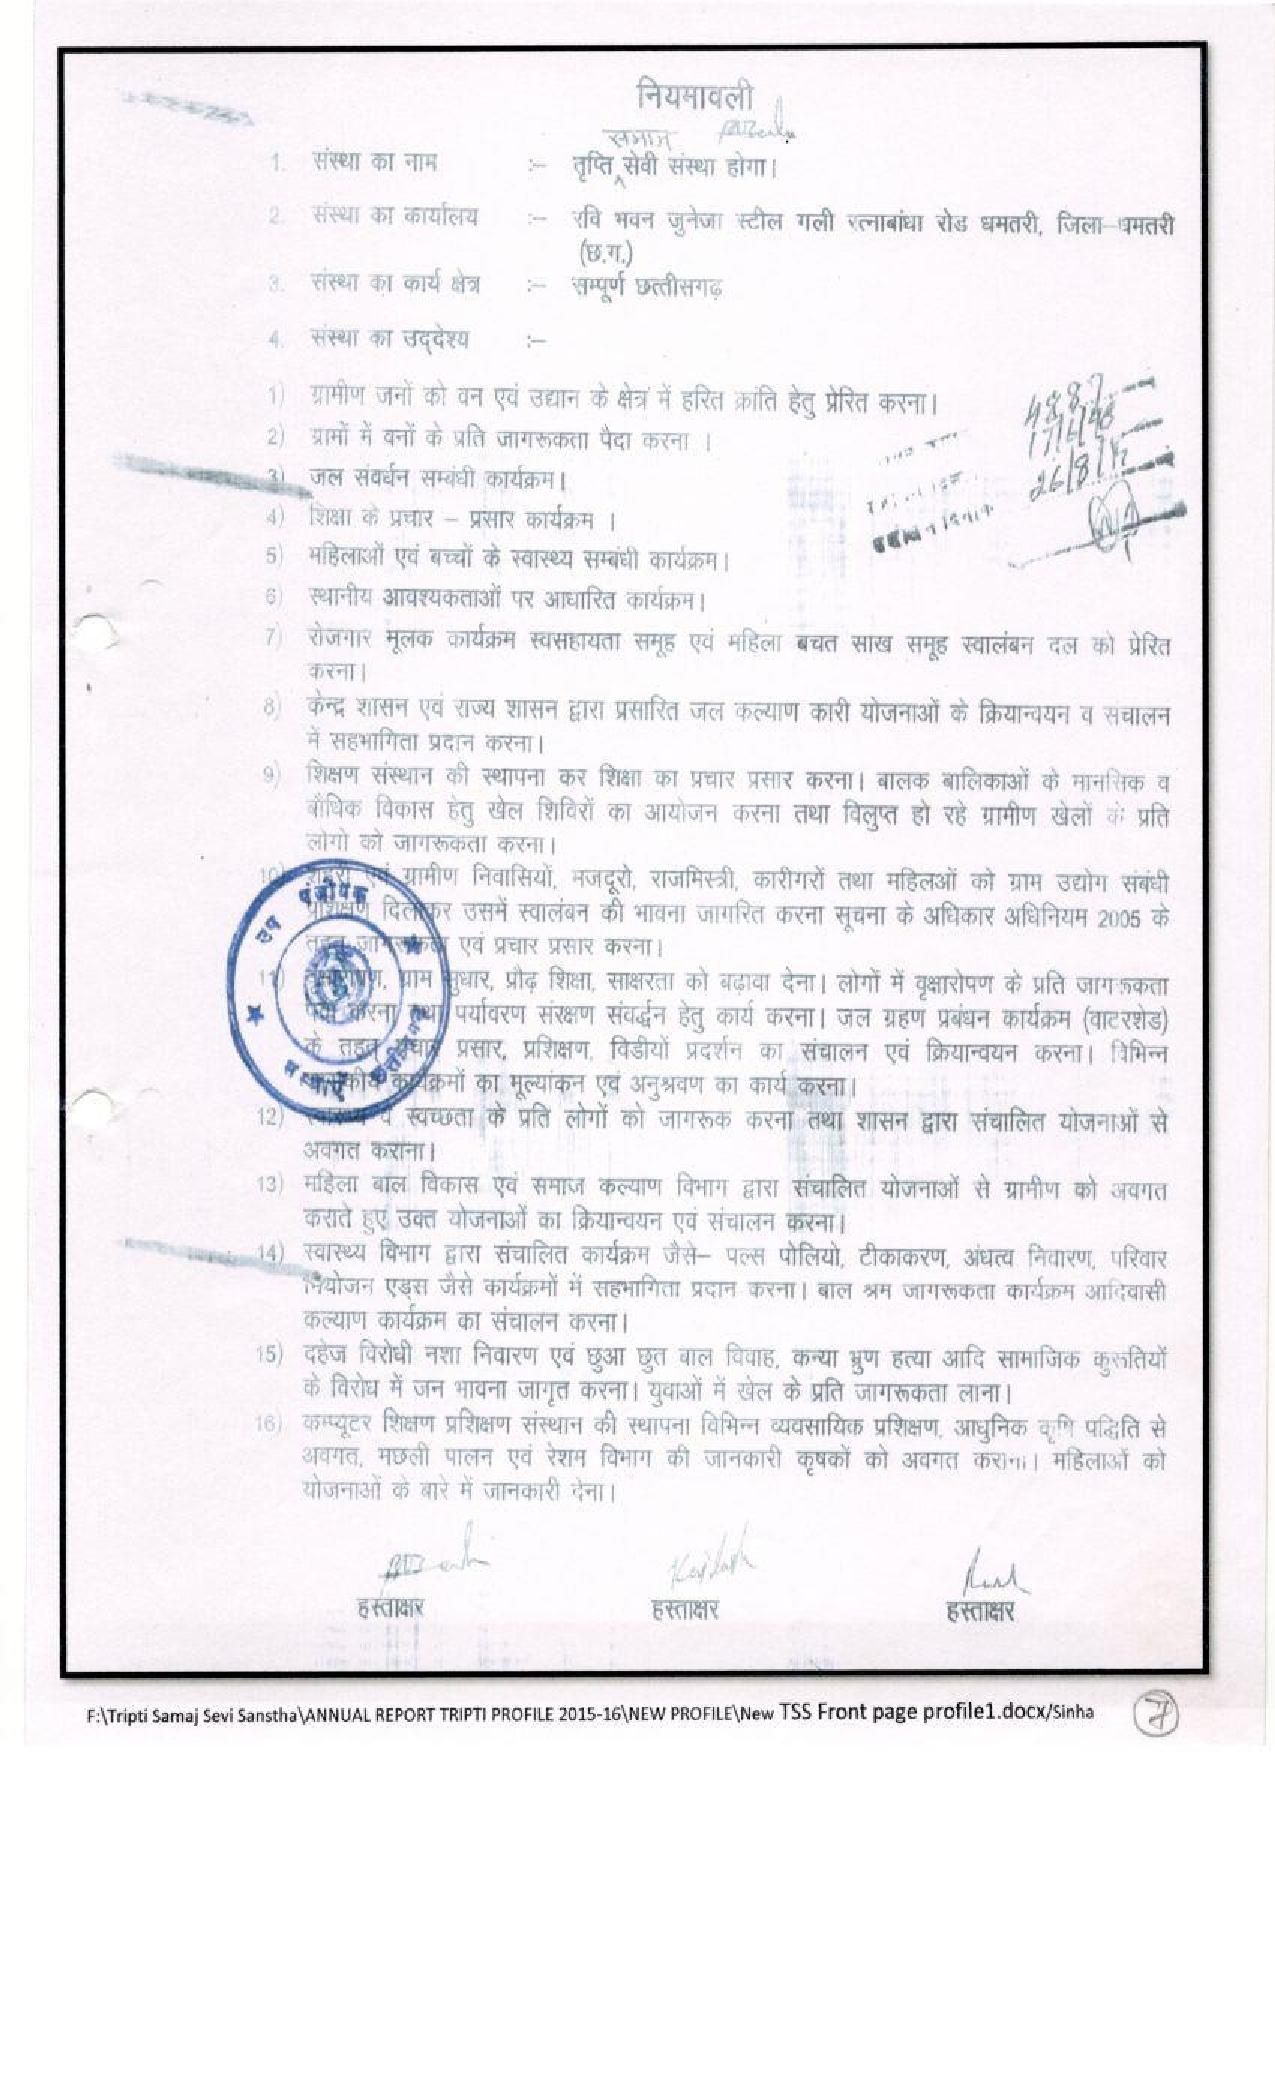 नियमावली
समाज
1. संस्था का नाम :– तृप्ति सेवी संस्था होगा।
2. संस्था का कार्यालय :– रवि भवन जुनेजा स्टील गली रत्नाबांधा रोड धमतरी, जिला–धमतरी
(छ.ग.)
3. संस्था का कार्य क्षेत्र :– सम्पूर्ण छत्तीसगढ़
4. संस्था का उद्देश्य :–
1) ग्रामीण जनों को वन एवं उद्यान के क्षेत्र में हरित क्रांति हेतु प्रेरित करना।
2) ग्रामों में वनों के प्रति जागरूकता पैदा करना ।
3) जल संवर्धन सम्बंधी कार्यक्रम।
4) शिक्षा के प्रचार – प्रसार कार्यक्रम ।
5) महिलाओं एवं बच्चों के स्वास्थ्य सम्बंधी कार्यक्रम।
6) स्थानीय आवश्यकताओं पर आधारित कार्यक्रम।
7) रोजगार मूलक कार्यक्रम स्वसहायता समूह एवं महिला बचत साख समूह स्वालंबन दल को प्रेरित
करना।
8) केन्द्र शासन एवं राज्य शासन द्वारा प्रसारित जल कल्याण कारी योजनाओं के क्रियान्वयन व सचालन
में सहभागिता प्रदान करना।
9) शिक्षण संस्थान की स्थापना कर शिक्षा का प्रचार प्रसार करना। बालक बालिकाओं के मानसिक व
बौधिक विकास हेतु खेल शिविरों का आयोजन करना तथा विलुप्त हो रहे ग्रामीण खेलों के प्रति
लोगो को जागरूकता करना।
10) शहरी एवं ग्रामीण निवासियों, मजदूरो, राजमिस्त्री, कारीगरों तथा महिलओं को ग्राम उद्योग संबंधी
प्रशिक्षण दिलाकर उसमें स्वालंबन की भावना जागरित करना सूचना के अधिकार अधिनियम 2005 के
तहत जागरूकता एवं प्रचार प्रसार करना।
11) ग्राम सुधार, प्रौढ़ शिक्षा, साक्षरता को बढ़ावा देना। लोगों में वृक्षारोपण के प्रति जागरूकता
पैदा करना तथा पर्यावरण संरक्षण संवर्द्धन हेतु कार्य करना। जल ग्रहण प्रबंधन कार्यक्रम (वाटरशेड)
के तहत प्रचार प्रसार, प्रशिक्षण, विडीयों प्रदर्शन का संचालन एवं क्रियान्वयन करना। विभिन्न
शासकीय कार्यक्रमों का मूल्यांकन एवं अनुश्रवण का कार्य करना।
12) स्वास्थ्य व स्वच्छता के प्रति लोगों को जागरूक करना तथा शासन द्वारा संचालित योजनाओं से
अवगत कराना।
13) महिला बाल विकास एवं समाज कल्याण विभाग द्वारा संचालित योजनाओं से ग्रामीण को अवगत
कराते हुए उक्त योजनाओं का क्रियान्वयन एवं संचालन करना।
14) स्वास्थ्य विभाग द्वारा संचालित कार्यक्रम जैसे– पल्स पोलियो, टीकाकरण, अंधत्व निवारण, परिवार
नियोजन एड्स जैसे कार्यक्रमों में सहभागिता प्रदान करना। बाल श्रम जागरूकता कार्यक्रम आदिवासी
कल्याण कार्यक्रम का संचालन करना।
15) दहेज विरोधी नशा निवारण एवं छुआ छुत बाल विवाह, कन्या भ्रुण हत्या आदि सामाजिक कुरूतियों
के विरोध में जन भावना जागृत करना। युवाओं में खेल के प्रति जागरूकता लाना।
16) कम्प्यूटर शिक्षण प्रशिक्षण संस्थान की स्थापना विभिन्न व्यवसायिक प्रशिक्षण, आधुनिक कृषि पद्धिति से
अवगत, मछली पालन एवं रेशम विभाग की जानकारी कृषकों को अवगत कराना। महिलाओं को
योजनाओं के बारे में जानकारी देना।
4887
17/6/98
26/8/12
उप पंजीयक
हस्ताक्षर हस्ताक्षर हस्ताक्षर
F:\Tripti Samaj Sevi Sanstha\ANNUAL REPORT TRIPTI PROFILE 2015-16\NEW PROFILE\New TSS Front page profile1.docx/Sinha
7